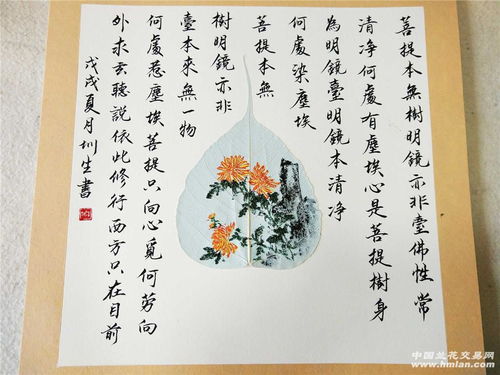 菩提本無樹明鏡亦非臺佛性常
清净何處有塵埃心是菩提樹身
為明鏡臺明鏡本清净
何處染塵埃
菩提本無
樹明鏡亦非
臺本來無一物
何處惹塵埃菩提只向心覓何勞向
外求玄聽說依此修行西方只在目前
戊戌夏月圳生書
中国兰花交易网
www.hmlan.com